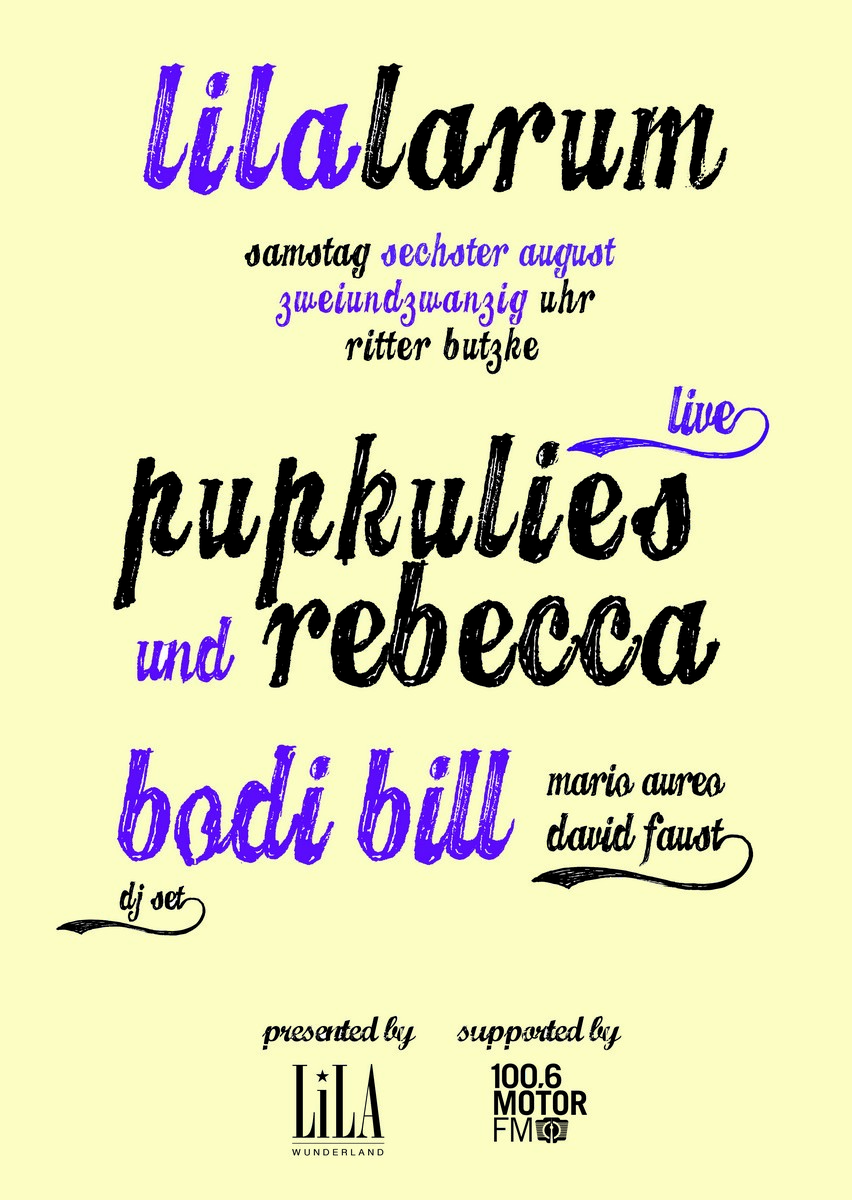 lilalarum
samstag sechster august
zweiundzwanzig uhr
ritter butzke
live
pupkulies
und rebecca
bodi bill
dj set
mario aureo
david faust
presented by
LiLA
WUNDERLAND
supported by
100,6
MOTOR
FM